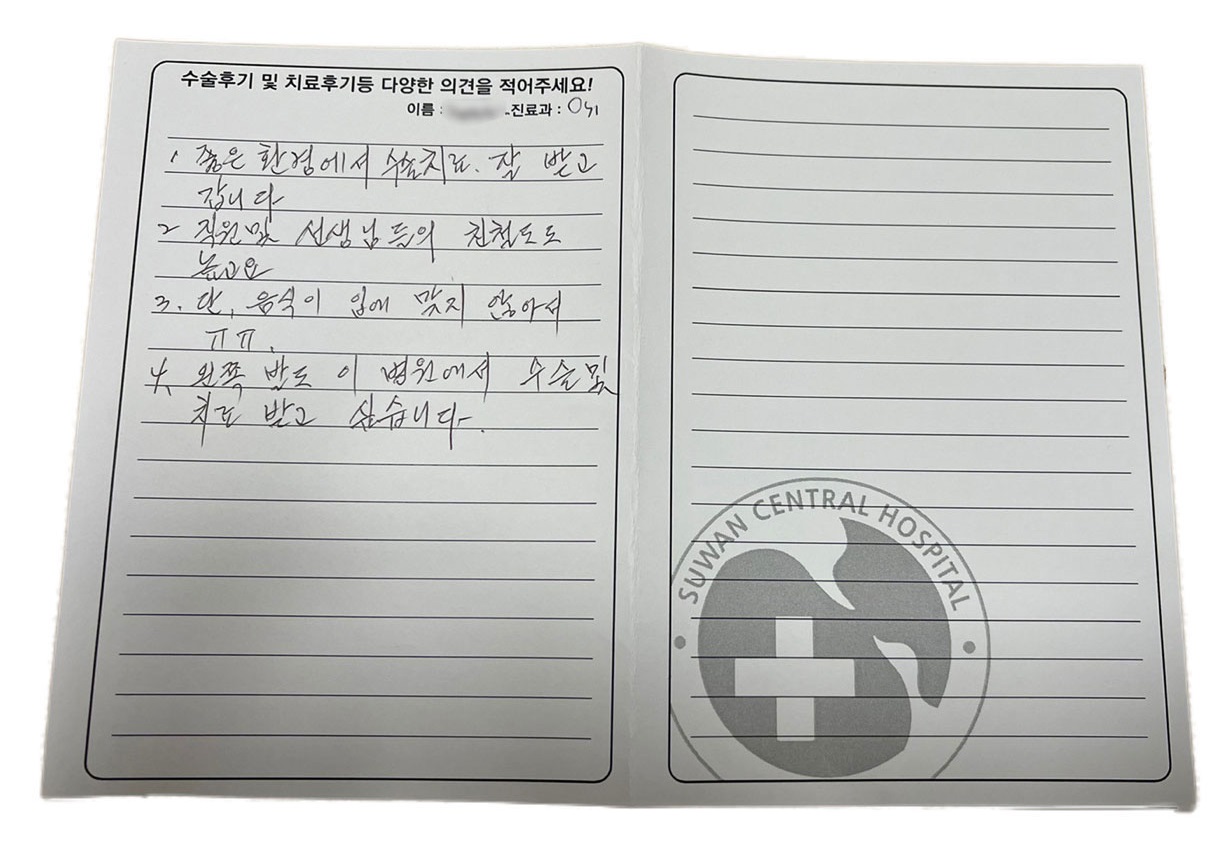 수술후기 및 치료후기등 다양한 의견을 적어주세요!
이름 : 진료과 : OS1
1 좋은 환경에서 수술치료. 잘 받고
갑니다
2 직원및 선생님들의 친철도도
높고요
3. 단, 음식이 입에 맞지 않아서
ㅠㅠ.
4. 왼쪽 발도 이 병원에서 수술및
치료 받고 싶습니다.
SUWAN CENTRAL HOSPITAL